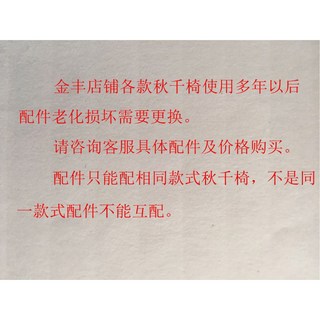 金丰店铺各款秋千椅使用多年以后
配件老化损坏需要更换。
请咨询客服具体配件及价格购买。
配件只能配相同款式秋千椅，不是同
一款式配件不能互配。